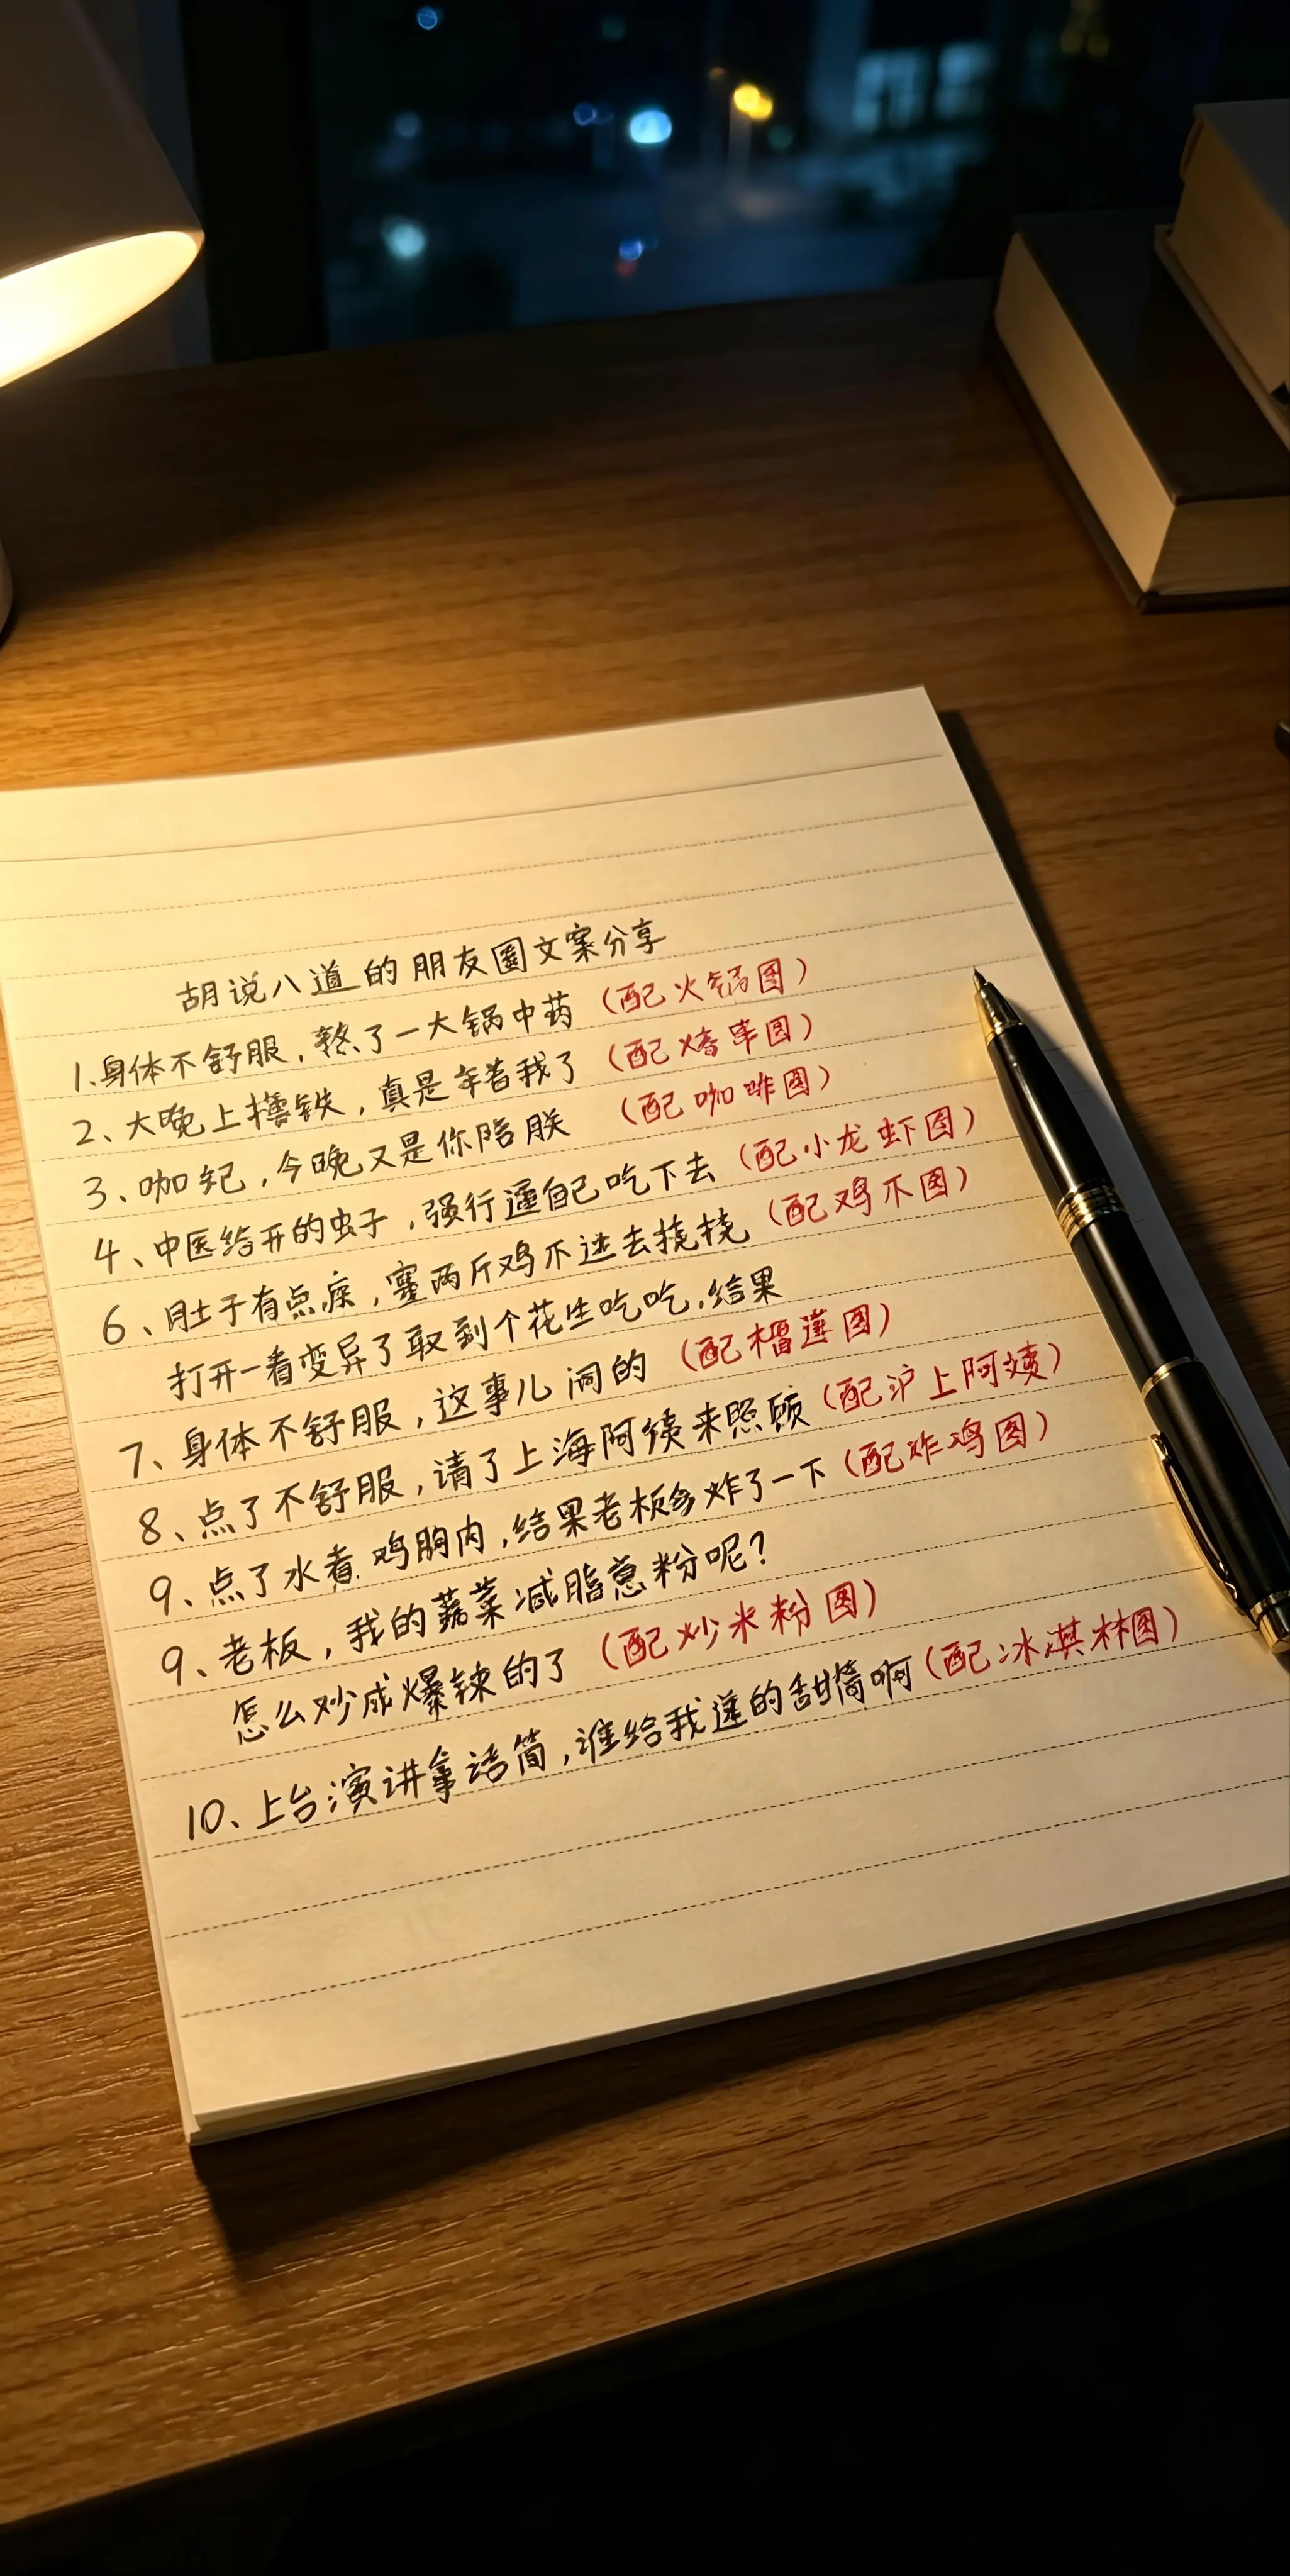 胡说八道的朋友圈文案分享
1.身体不舒服，熬了一大锅中药（配火锅图）
2、大晚上撸铁，真是辛苦我了（配烤串图）
3、咖妃，今晚又是你陪朕（配咖啡图）
4、中医给开的虫子，强行逼自己吃下去（配小龙虾图）
6、肚子有点痠，塞两斤鸡爪进去挠挠（配鸡爪图）
打开一看变异了取到个花生吃吃，结果
7、身体不舒服，这事儿闹的（配榴莲图）
8、点了不舒服，请了上海阿姨来照顾（配沪上阿姨）
9、点了水煮鸡胸肉，结果老板多炸了一下（配炸鸡图）
9、老板，我的蔬菜减脂意粉呢？
怎么炒成爆辣的了（配炒米粉图）
10、上台演讲拿话筒，谁给我递的甜筒啊（配冰淇林图）